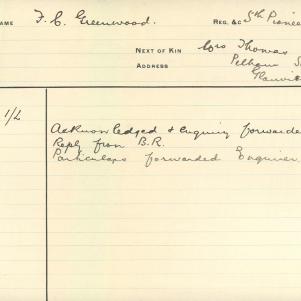 NAME F. C. Greenwood. REG. &C 5th Pionee
NEXT OF KIN Mrs Thomas
ADDRESS Pelham S
1/L
Acknowledged & enquiry forwarde
Reply from B.R.
Particulars forwarded Enquirer